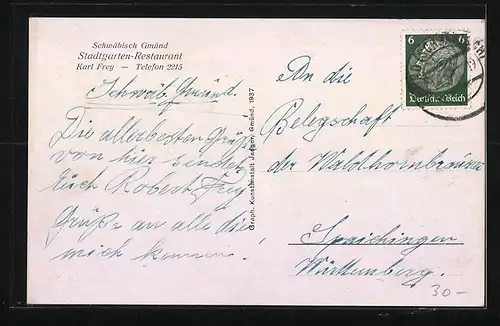 Schwäbisch Gmünd
Stadtgarten-Restaurant
Karl Frey — Telefon 2215
Schwäb. Gmünd.
Die allerbesten Grüße
von hier sendet
Euch Robert Frey
Grüße an alle die
mich kennen!
Graph. Kunstanstalt Jaeger, Gmünd, 1937
6 6
Deutsches Reich
An die
Belegschaft
der Waldhornbrauerei
Spaichingen
Württemberg.
30-